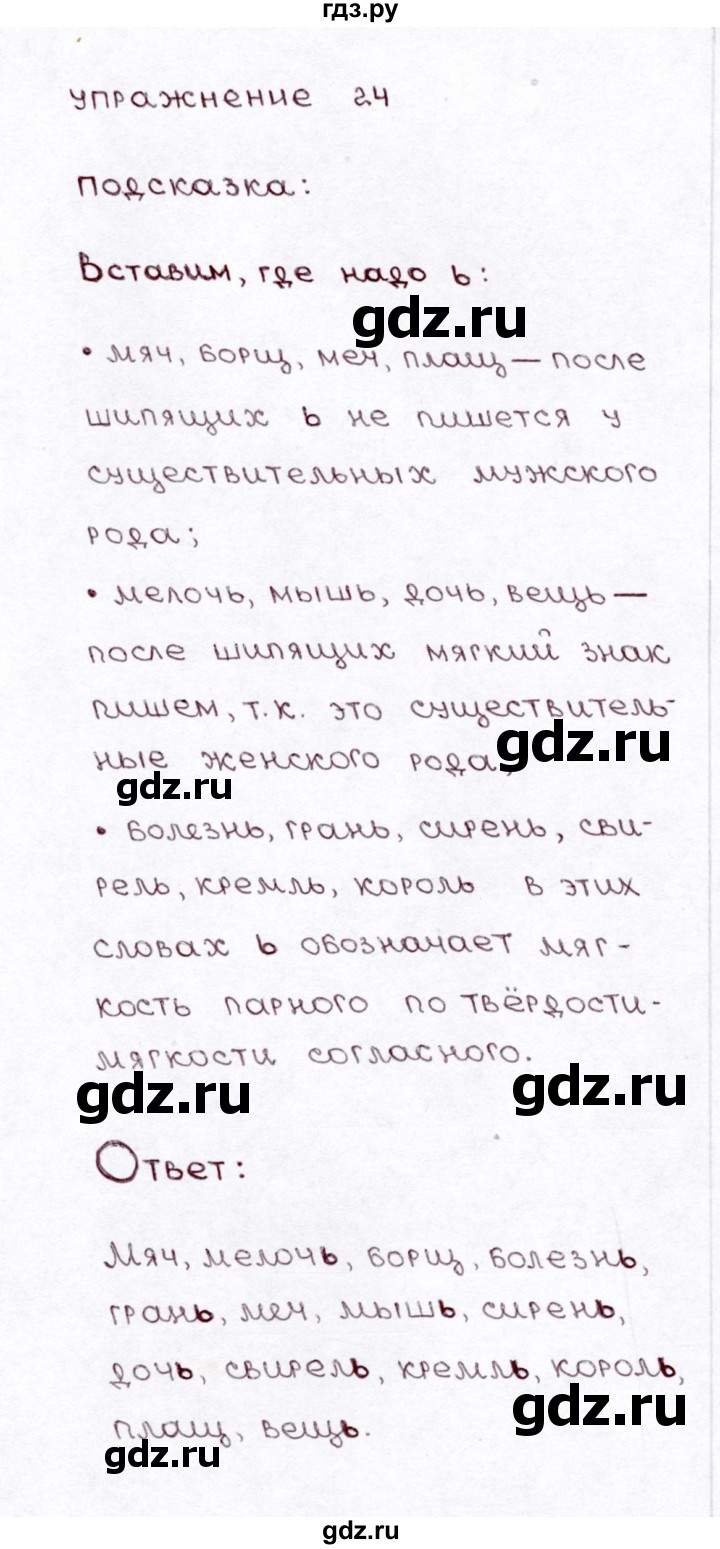 гдз.ру
упражнение 24
подсказка:
Вставим, где надо ь:
gdz.ru
• мяч, борщ, меч, плащ — после
шипящих ь не пишется у
существительных мужского
рода;
• мелочь, мышь, дочь, вещь —
после шипящих мягкий знак
пишем, т.к. это существитель-
ные женского рода;
gdz.ru
gdz.ru
• болезнь, грань, сирень, сви-
рель, кремль, король в этих
словах ь обозначает мяг-
кость парного по твёрдости-
мягкости согласного.
gdz.ru
gdz.ru
Ответ:
Мяч, мелочь, борщ, болезнь,
грань, меч, мышь, сирень,
дочь, свирель, кремль, король,
gdz.ru
плащ, вещь.
gdz.ru
gdz.ru